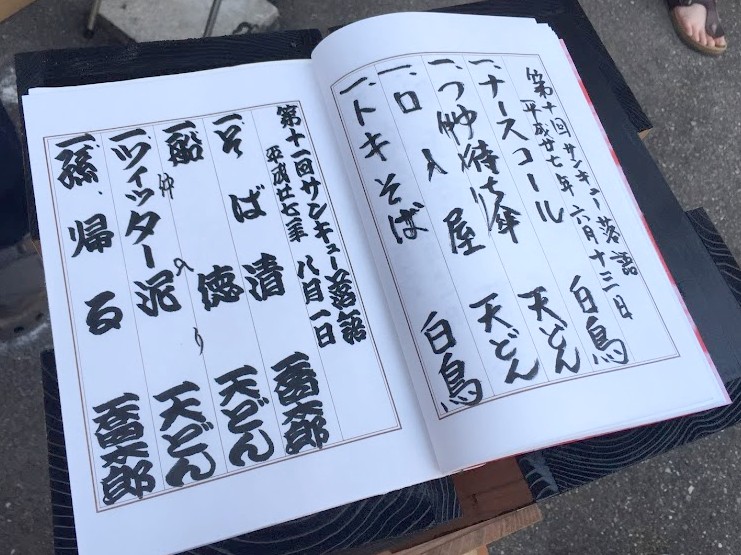 第十回サンキュー落語
平成廿七年 六月十三日
一、ナースコール 白鳥
一、つ 待ち傘 天どん
一、口入屋 天どん
一、トキそば 白鳥
第十一回サンキュー落語
平成廿七年 八月一日
一、そば清 喬太郎
一、船徳 天どん
一、ツィッター泥 天どん
一、孫、帰る 喬太郎